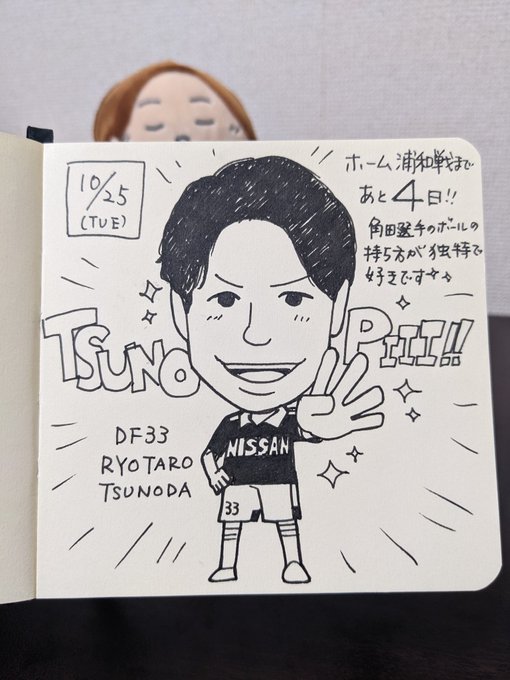 10/25
(TUE)
ホーム浦和戦まで
あと4日!!
角田選手のボールの
持ち方が独特で
好きです
TSUNO
PIII!!
DF33
RYOTARO
TSUNODA
NISSAN
33